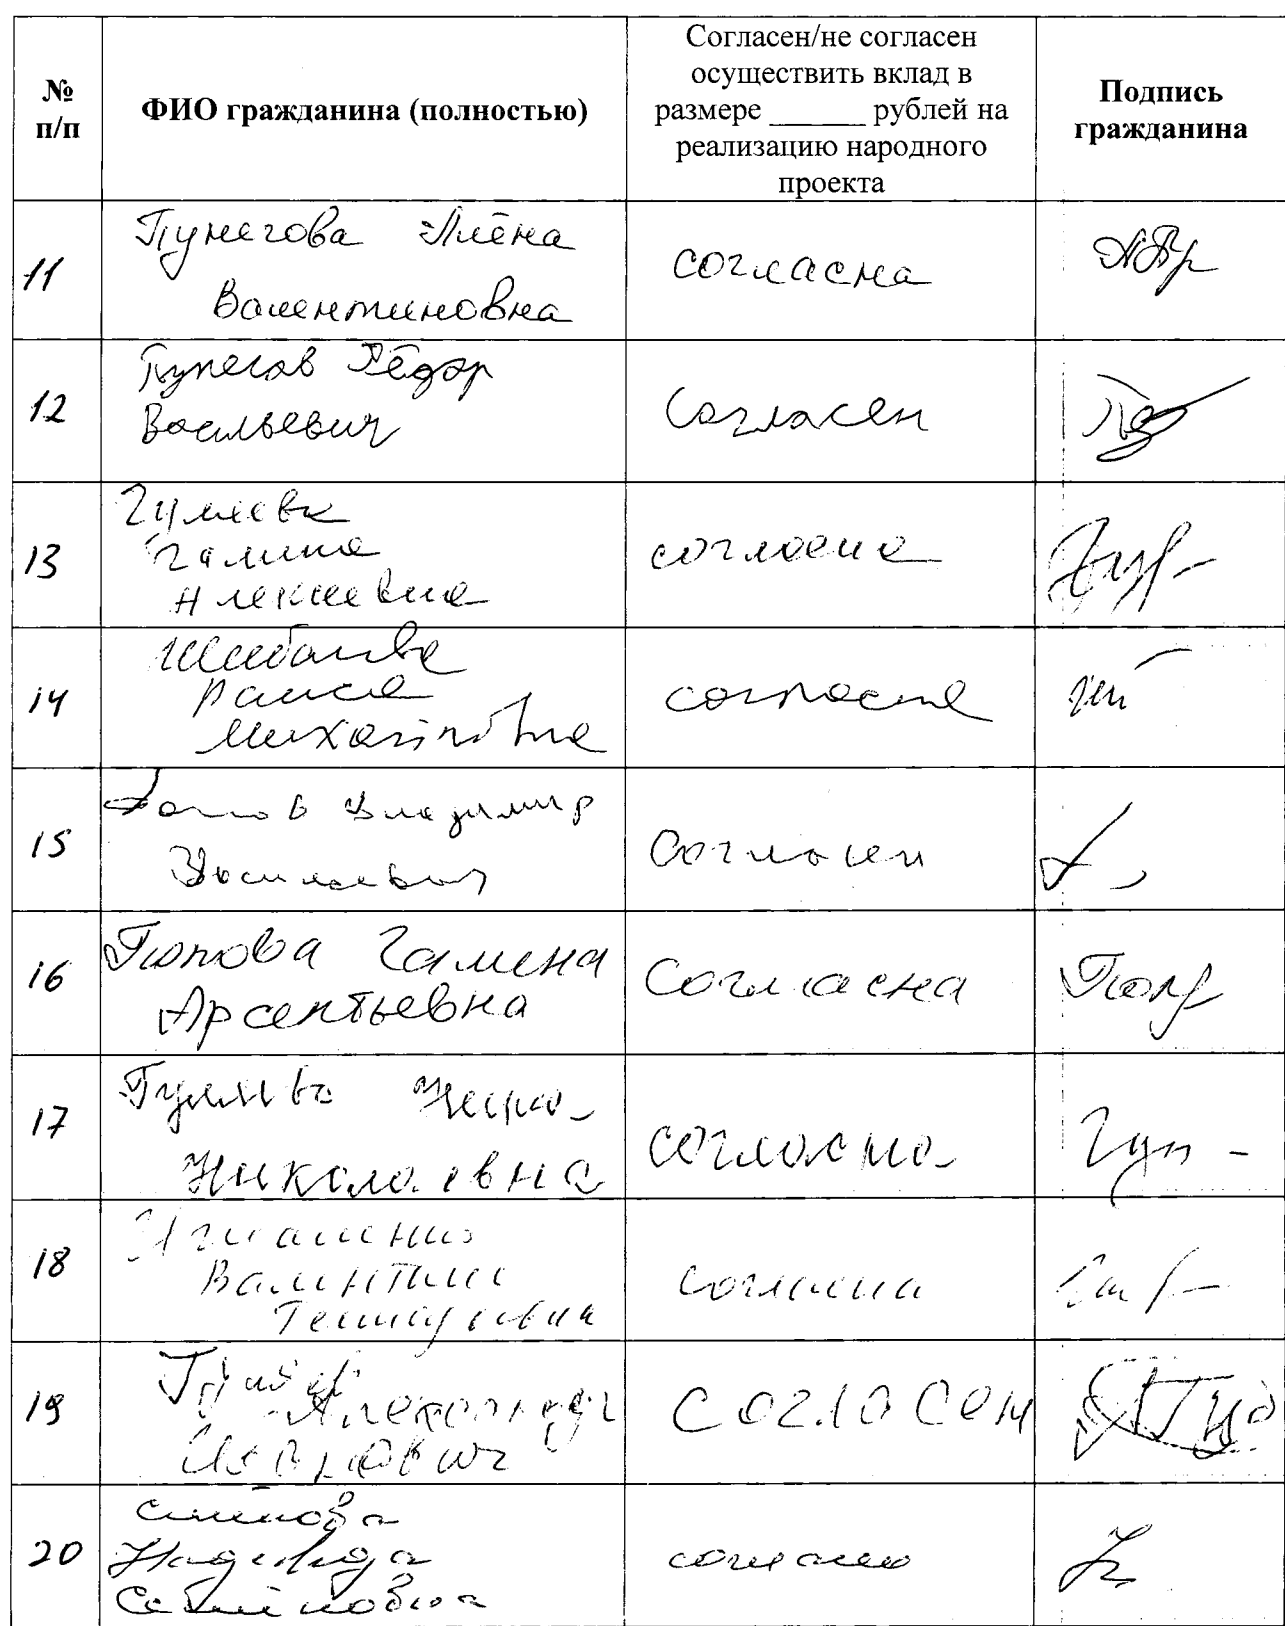 № п/п
ФИО гражданина (полностью)
Согласен/не согласен
осуществить вклад в
размере ______ рублей на
реализацию народного
проекта
Подпись
гражданина
11
Пунегова Алёна
Валентиновна
согласна
12
Пунегов Фёдор
Васильевич
Согласен
13
Гуляева
Галина
Алексеевна
согласна
14
Шибаева
Раиса
Михайловна
согласна
15
Владимир
Васильевич
Согласен
16
Попова Галина
Арсентьевна
Согласна
17
Николаевна
согласна
18
Валентина
Геннадьевна
согласна
19
Александр
Иванович
согласен
20
Надежда
Семёновна
согласна